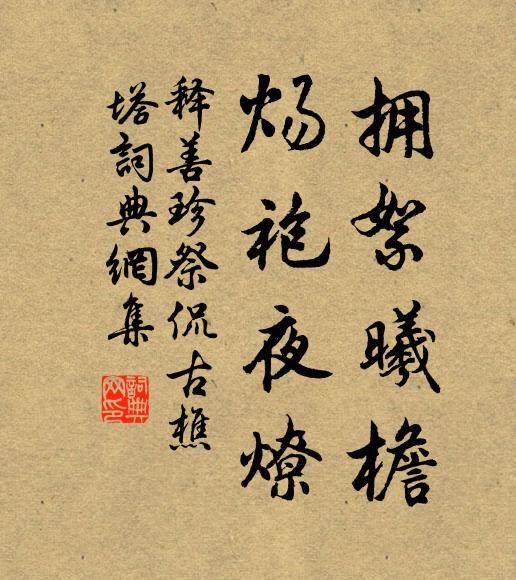 拥絮曦檐
炀袍夜燎
释善珍祭侃古樵
塔詞典網集
詞典网印